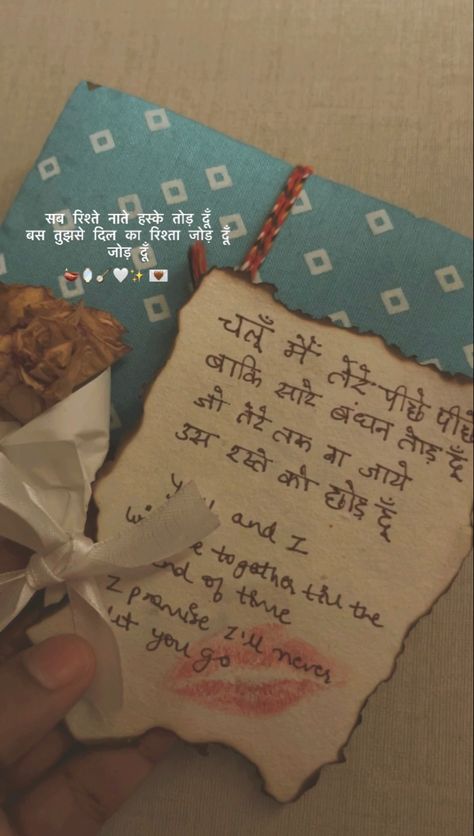 सब रिश्ते नाते हस्के तोड़ दूँ
बस तुझसे दिल का रिश्ता जोड़ दूँ
जोड़ दूँ
चलूँ मैं तेरे पीछे पीछे
बाकि सारे बंधन तोड़ दूँ
जो तेरे तक ना जाये
उस रस्ते को छोड़ दूँ
and I
together till the
end of time
I promise I'll never
let you go